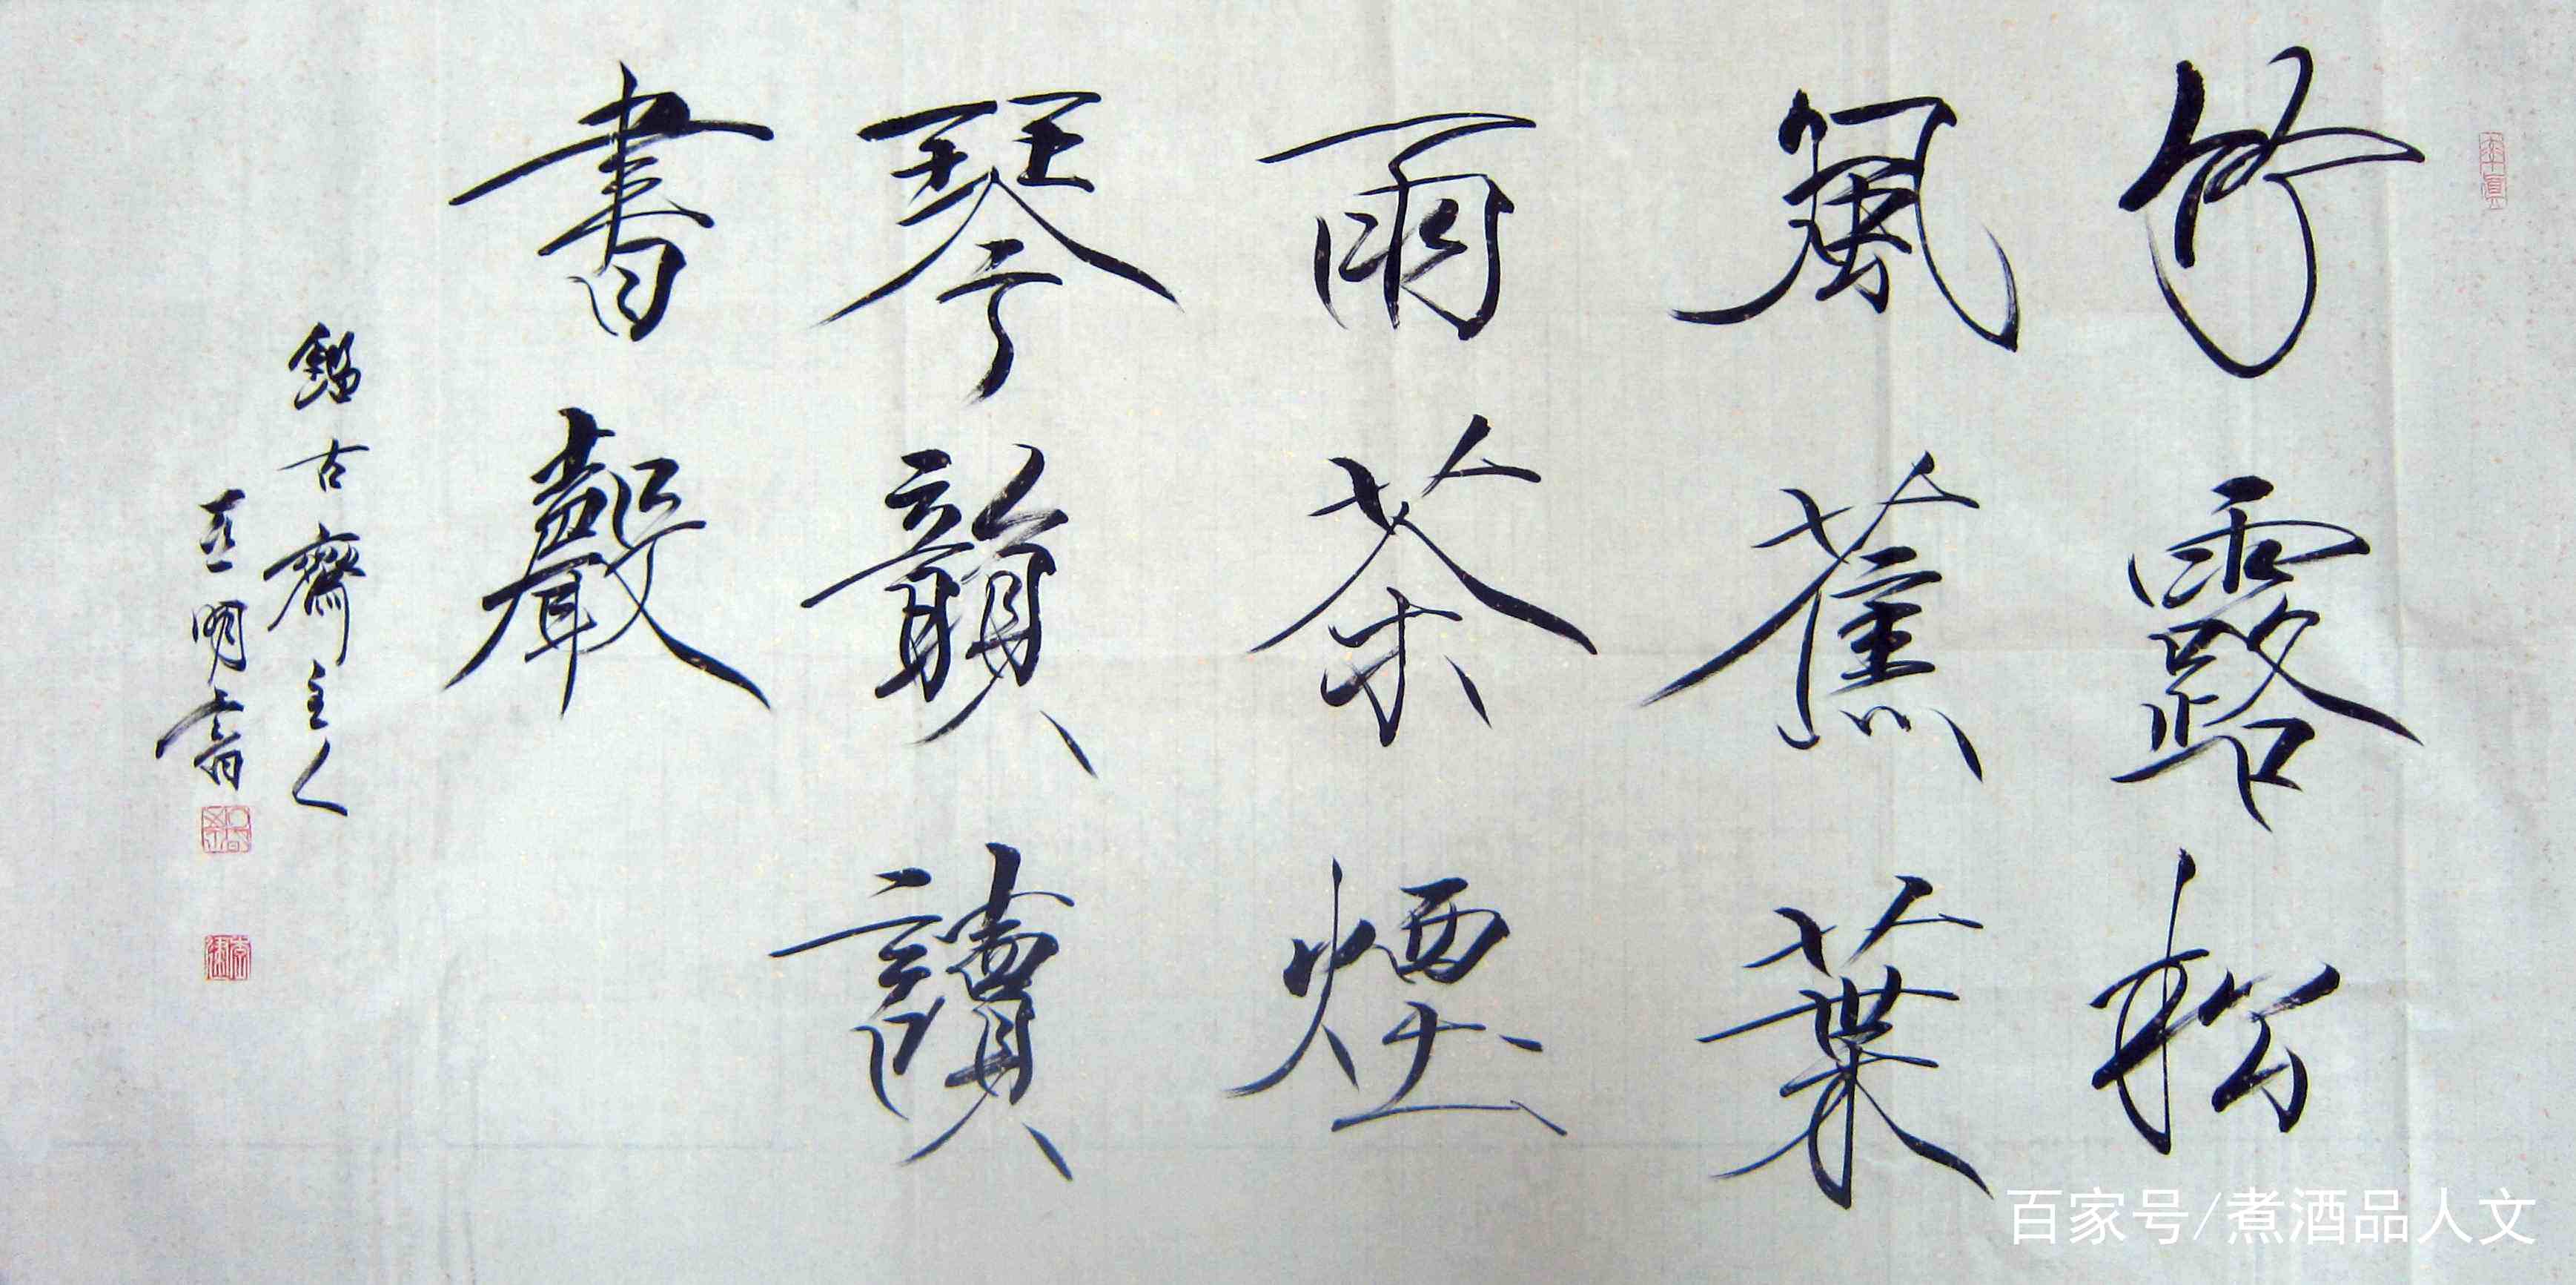 竹露松
風蕉葉
雨茶煙
琴韻讀
書聲
古齋主人
百家号/煮酒品人文